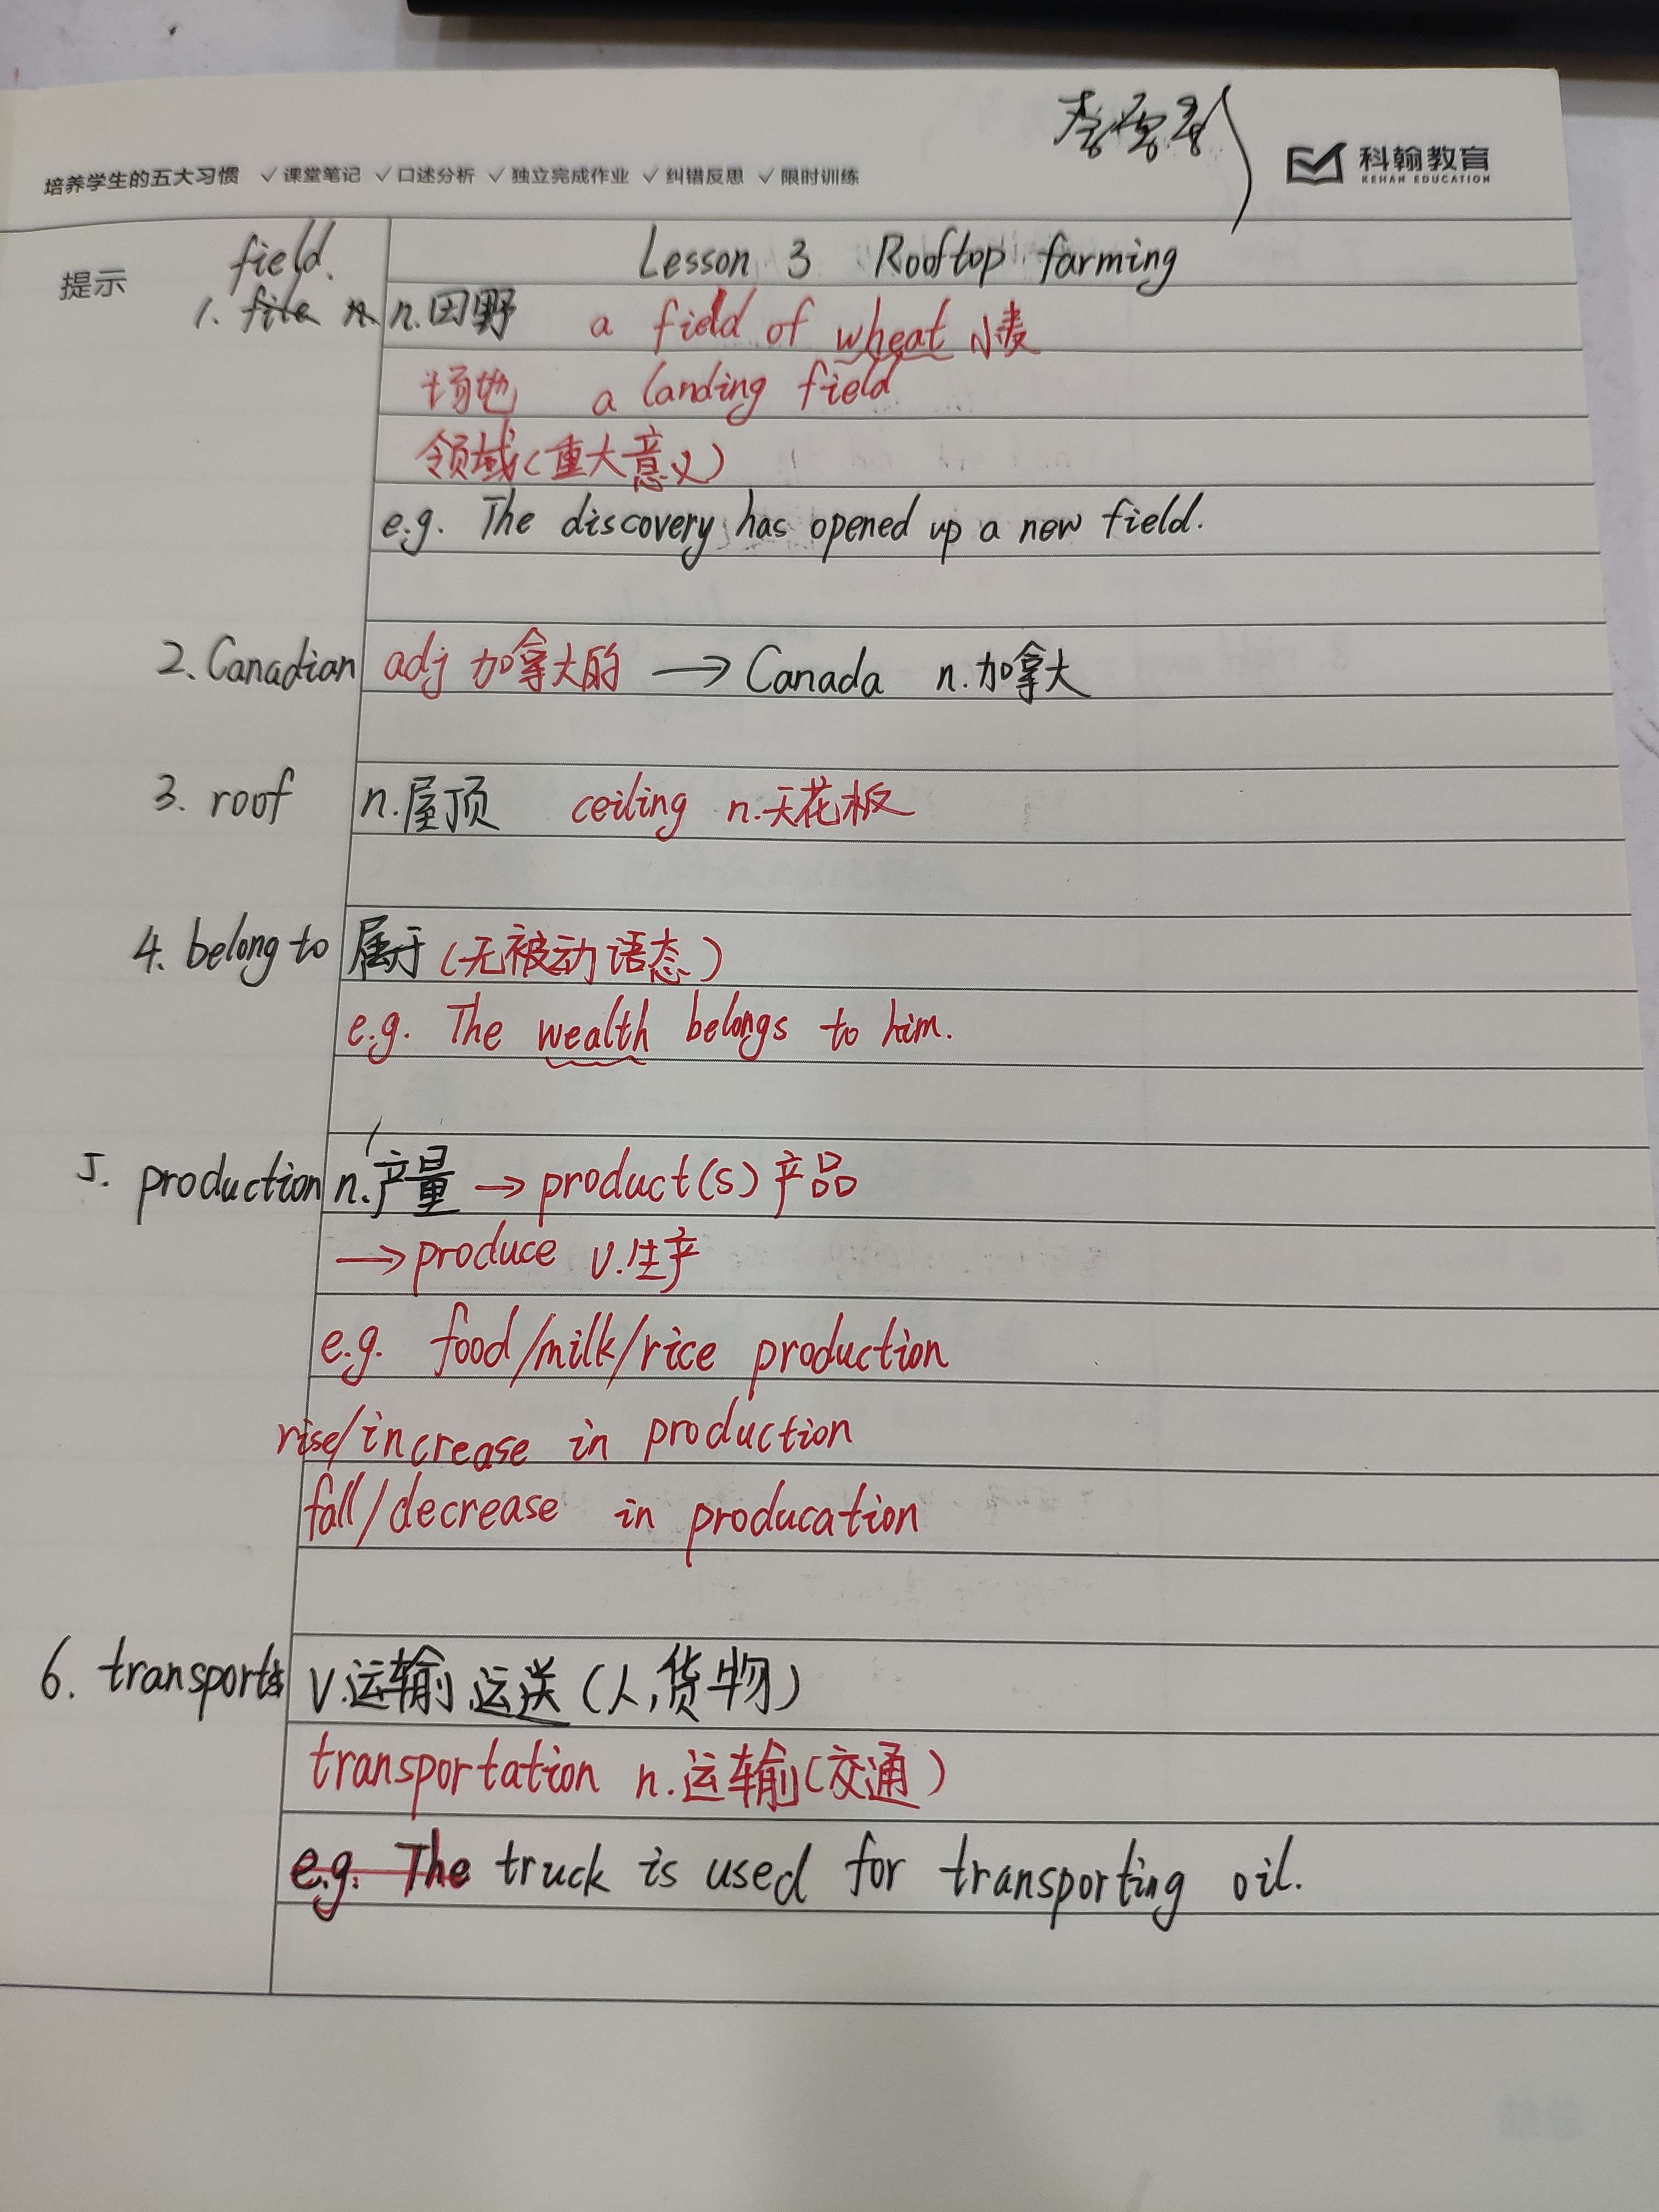 培养学生的五大习惯 ✓课堂笔记 ✓口述分析 ✓独立完成作业 ✓纠错反思 ✓限时训练
科翰教育
KEHAN EDUCATION
提示
Lesson 3 Rooftop farming
1. field. n.田野 a field of wheat 小麦
场地 a landing field
领域(重大意义)
e.g. The discovery has opened up a new field.
2. Canadian adj 加拿大的 → Canada n.加拿大
3. roof n.屋顶 ceiling n.天花板
4. belong to 属于(无被动语态)
e.g. The wealth belongs to him.
5. production n.产量 → product(s) 产品
→ produce v.生产
e.g. food/milk/rice production
rise/increase in production
fall/decrease in producation
6. transport v.运输,运送(人,货物)
transportation n.运输(交通)
e.g. The truck is used for transporting oil.